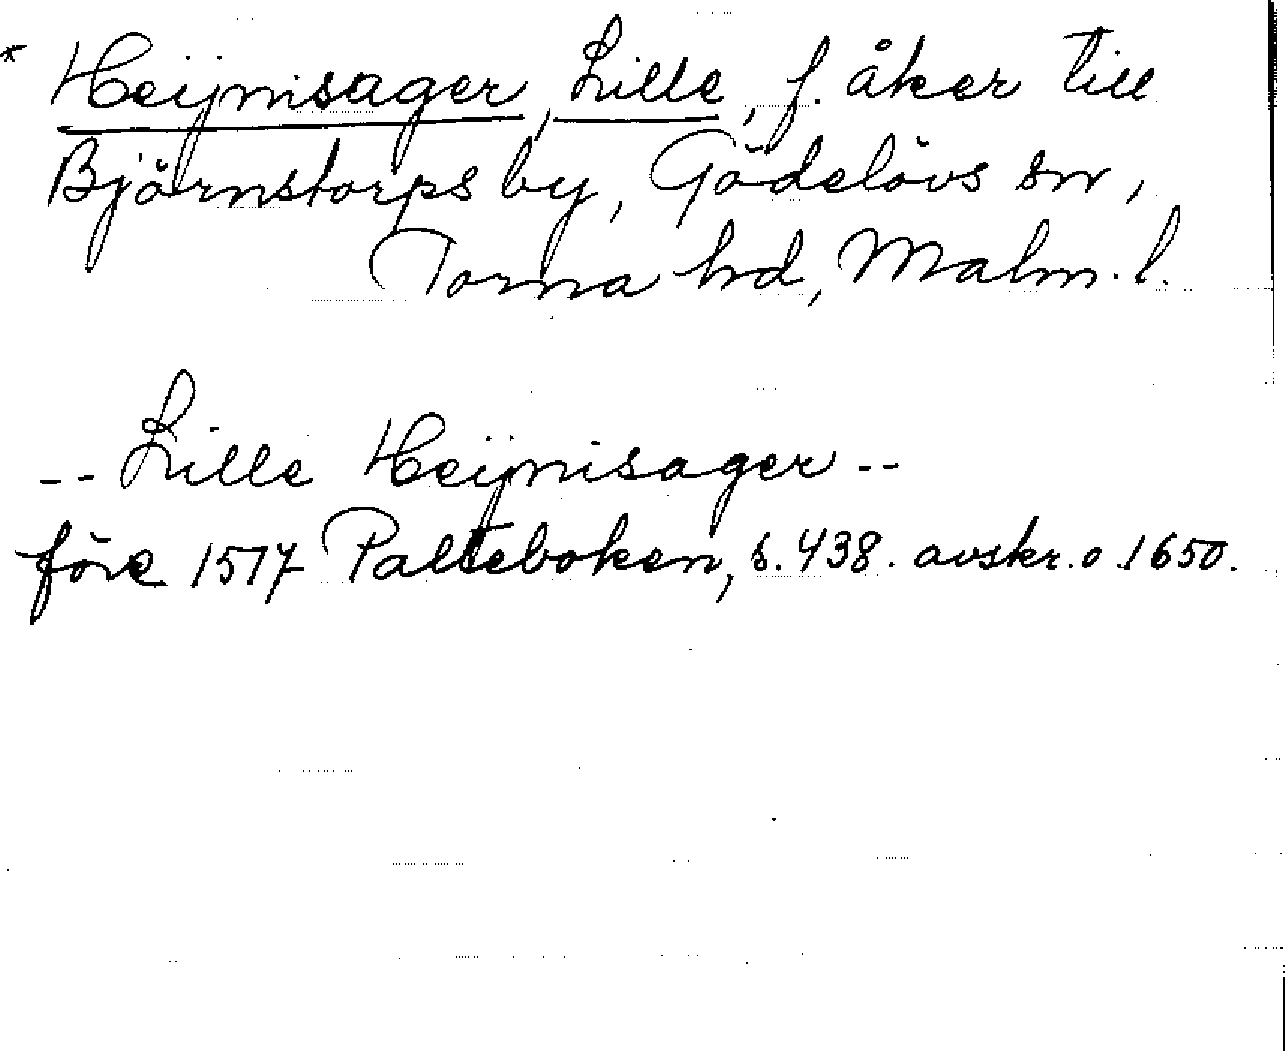 * Heÿnisager, Lille, f. åker till
Björnstorps by, Gödelövs sn,
Torna hd, Malm. l.
-- Lille Heÿnisager --
före 1517 Palteboken, s. 438. avskr. o 1650.